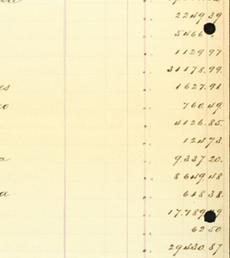 2249 39
5466
1129 97
31178.99.
es 1627.91
co 760 49
4126.85.
124 73
a 9337 20.
8649 48
a 618 38
17.789
62 50
29430.87